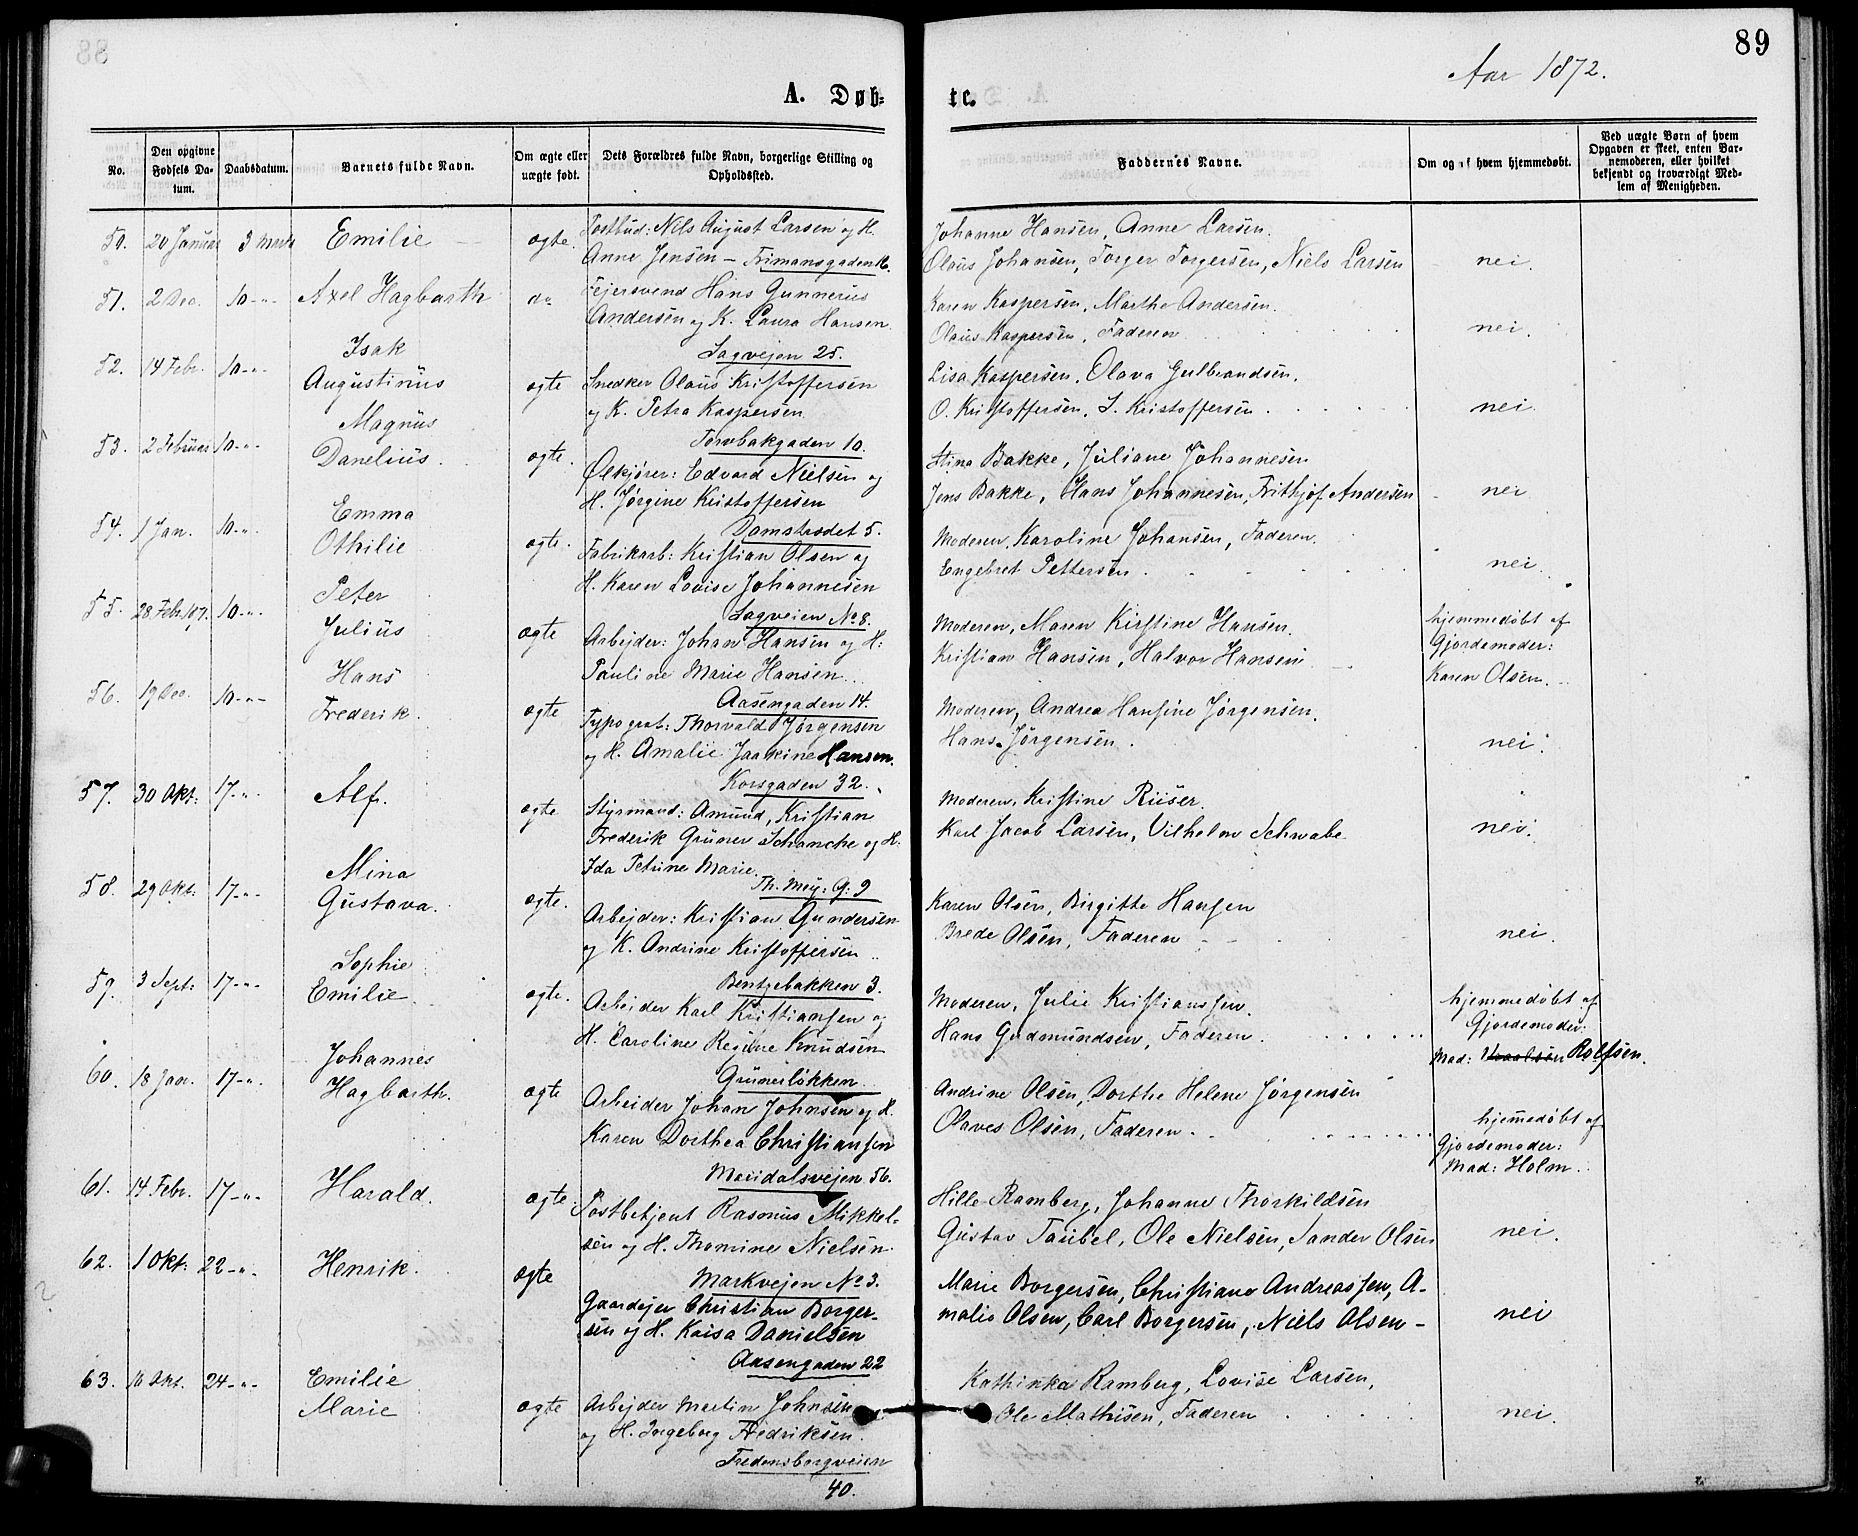 88
89
Aar 1872.
A. Døb=
te.
No.
Den opgivne
Fødsels Da-
tum.
Daabsdatum.
Barnets fulde Navn.
Om ægte eller
uægte født.
Dets Forældres fulde Navn, borgerlige Stilling og
Opholdssted.
Faddernes Navne.
Om og af hvem hjemmedøbt.
Ved uægte Børn af hvem
Opgaven er skeet, enten Bar-
nemoderen, eller hvilket
bekjendt og troværdigt Med-
lem af Menigheden.
50. 20 Januar 3 Marts Emilie ægte. Postbud: Nils August Larsen og H.
Anne Jensen - Frimansgaden 16.
Johanne Hansen, Anne Larsen.
Olaus Johansen, Torger Torgersen, Niels Larsen nei.
51. 2 Dec. 10-"- Axel Hagbarth do Fejersvend Hans Gunnerius
Andersen og K. Laura Hansen.
Sagvejen 25.
Karen Kaspersen, Marthe Andersen.
Olaus Kaspersen, Faderen nei.
52. 14 Febr. 10-"- Isak
Augustinus ægte Snedker Olaus Kristoffersen
og K. Petra Kaspersen
Torvbakgaden 10.
Lisa Kaspersen, Olava Gulbrandsen.
O. Kristoffersen, S. Kristoffersen. nei.
53. 2 Februar 10-"- Magnus
Danelius. ægte. Ølkjører: Edvard Nielsen og
H. Jørgine Kristoffersen
Damstrædet 5.
Stina Bakke, Juliane Johannesen
Jens Bakke, Hans Johannesen, Frithjof Andersen nei
54. 1 Jan. 10-"- Emma
Othilie ægte. Fabrikarb: Kristian Olsen og
H. Karen Lovise Johannesen
Sagveien No 8.
Moderen, Karoline Johansen, Faderen.
Engebret Pettersen. nei.
55. 28 Feb. 187. 10-"- Peter
Julius ægte Arbejder: Johan Hansen og H:
Pauline Marie Hansen.
Aasengaden 14.
Moderen, Maren Kirstine Hansen.
Kristian Hansen, Halvor Hansen
hjemmedøbt af
Gjordemoder:
Karen Olsen.
56. 19 Dec. 10-"- Hans
Frederik. ægte Typograf: Thorvald Jørgensen
og H. Amalie Jaakine Hansen.
Korsgaden 32.
Moderen, Andrea Hansine Jørgensen.
Hans Jørgensen. nei.
57. 30 Okt: 17-"- Alf. ægte Styrmand: Amund, Kristian
Frederik Grüner Schanche og H.
Ida Petrine Marie.
Th. Mey: G: 9
Moderen, Kristine Riiser.
Karl Jacob Larsen, Vilhelm Schwabe nei.
58. 29 Okt: 17-"- Mina
Gustava. ægte. Arbejder: Kristian Gundersen
og K. Andrine Kristoffersen
Bentzebakken 3.
Karen Olsen, Birgitte Hansen
Brede Olsen, Faderen nei.
59. 3 Sept: 17-"- Sophie
Emilie. ægte. Arbeider Karl Kristiansen og
H. Caroline Regine Knudsen
Grünerløkken
Moderen, Julie Kristiansen.
Hans Gudmundsen, Faderen.
hjemmedøbt af
Gjordemoder:
Mad: Rolfsen.
60. 18 Jan. 17-"- Johannes
Hagbarth. ægte Arbeider Johan Johnsen og H.
Karen Dorthea Christiansen
Maridalsvejen 56.
Andrine Olsen, Dorthe Helene Jørgensen
Olaves Olsen, Faderen.
hjemmedøbt af
Gjordemoder:
Mad: Holm.
61. 14 Febr. 17-"- Harald. ægte. Postbetjent Rasmus Mikkel-
sen og H. Thomine Nielsen.
Markvejen No 3.
Hille Ramberg, Johanne Thorkildsen
Gustav Taubel, Ole Nielsen, Sander Olsen nei.
62. 1 Okt: 22-"- Henrik. ægte Gaardejer Christian Borger-
sen og H. Kaisa Danielsen
Aasengaden 22
Marie Borgersen, Christiane Andreassen, A-
malie Olsen, Carl Borgersen, Niels Olsen - nei
63. 16 Okt. 24-"- Emilie
Marie ægte Arbejder Martin Johnsen
og H. Ingeborg Fredriksen.
Fredensborgveien
40.
Kathinka Ramberg, Lovise Larsen,
Ole Mathisen, Faderen nei.